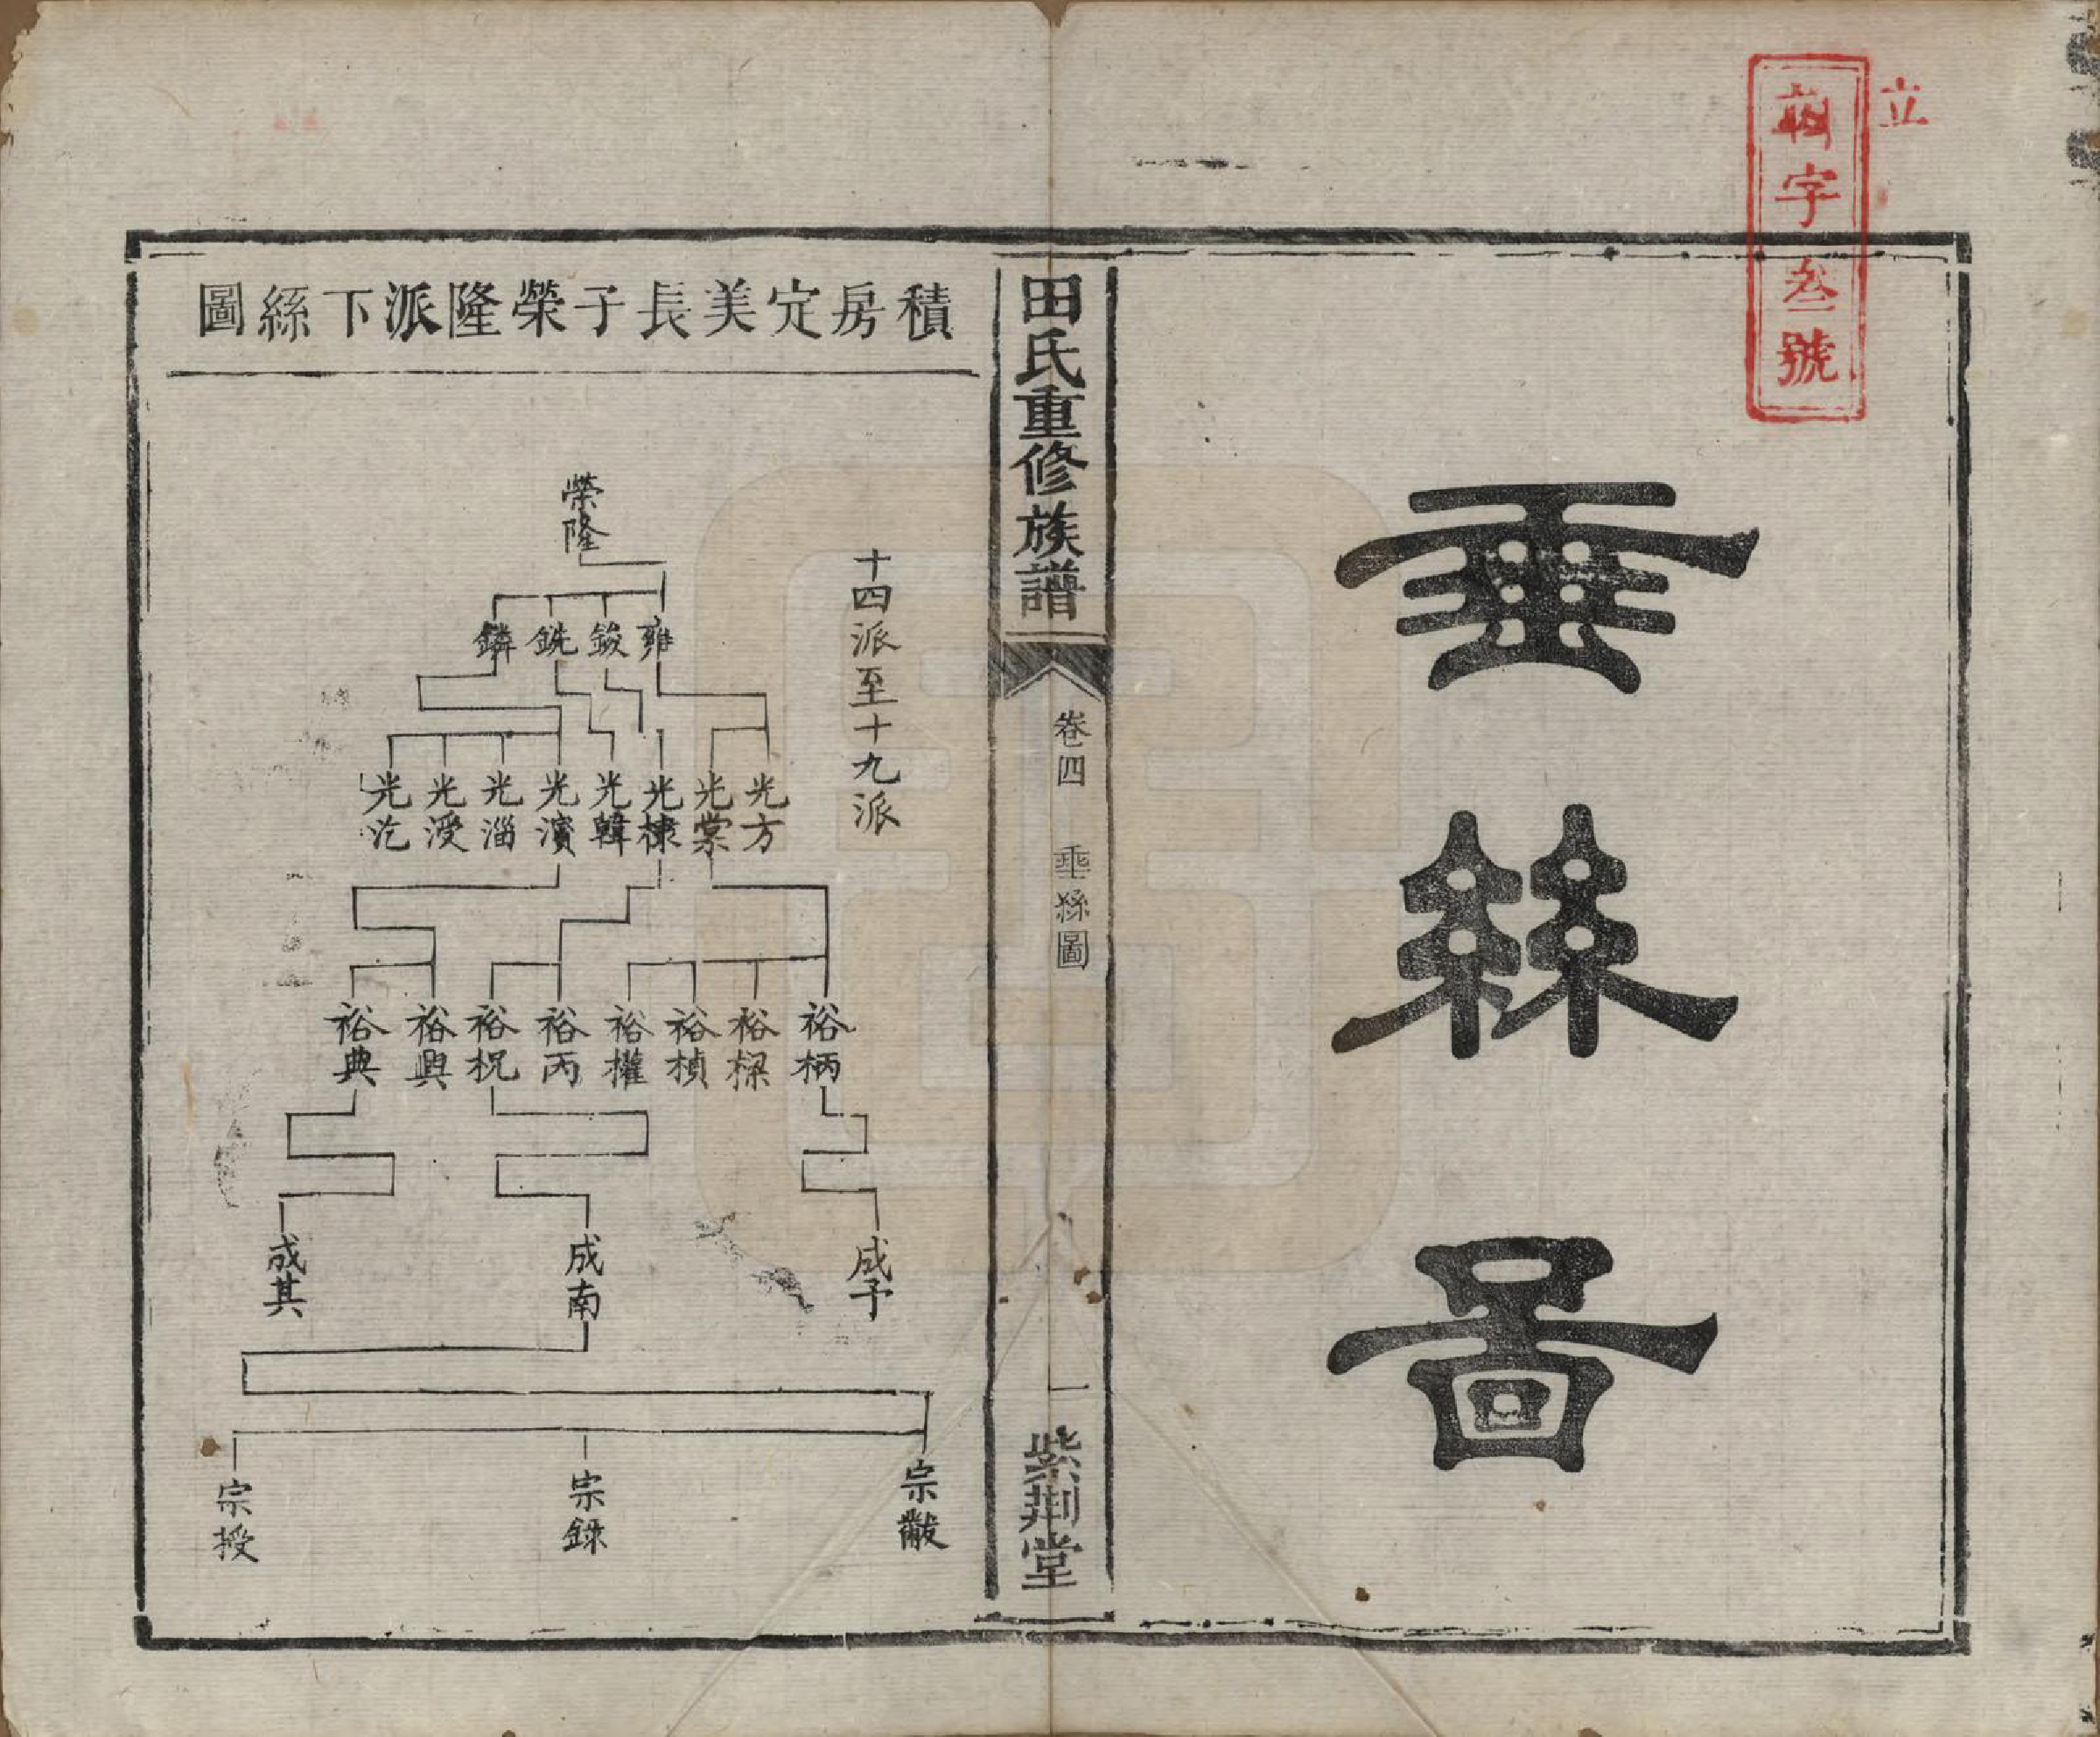 立
字叁號
垂絲圖
田氏重修族譜
卷四
垂絲圖
一
紫荆堂
積房定美長子榮隆派下絲圖
十四派至十九派
榮隆
雍
鋑
銑
鏻
光方
光棠
光棣
光韓
光濱
光淄
光澐
光汔
裕柄
裕樑
裕楨
裕權
裕丙
裕柷
裕興
裕典
成予
成南
成其
宗黻
宗錄
宗授